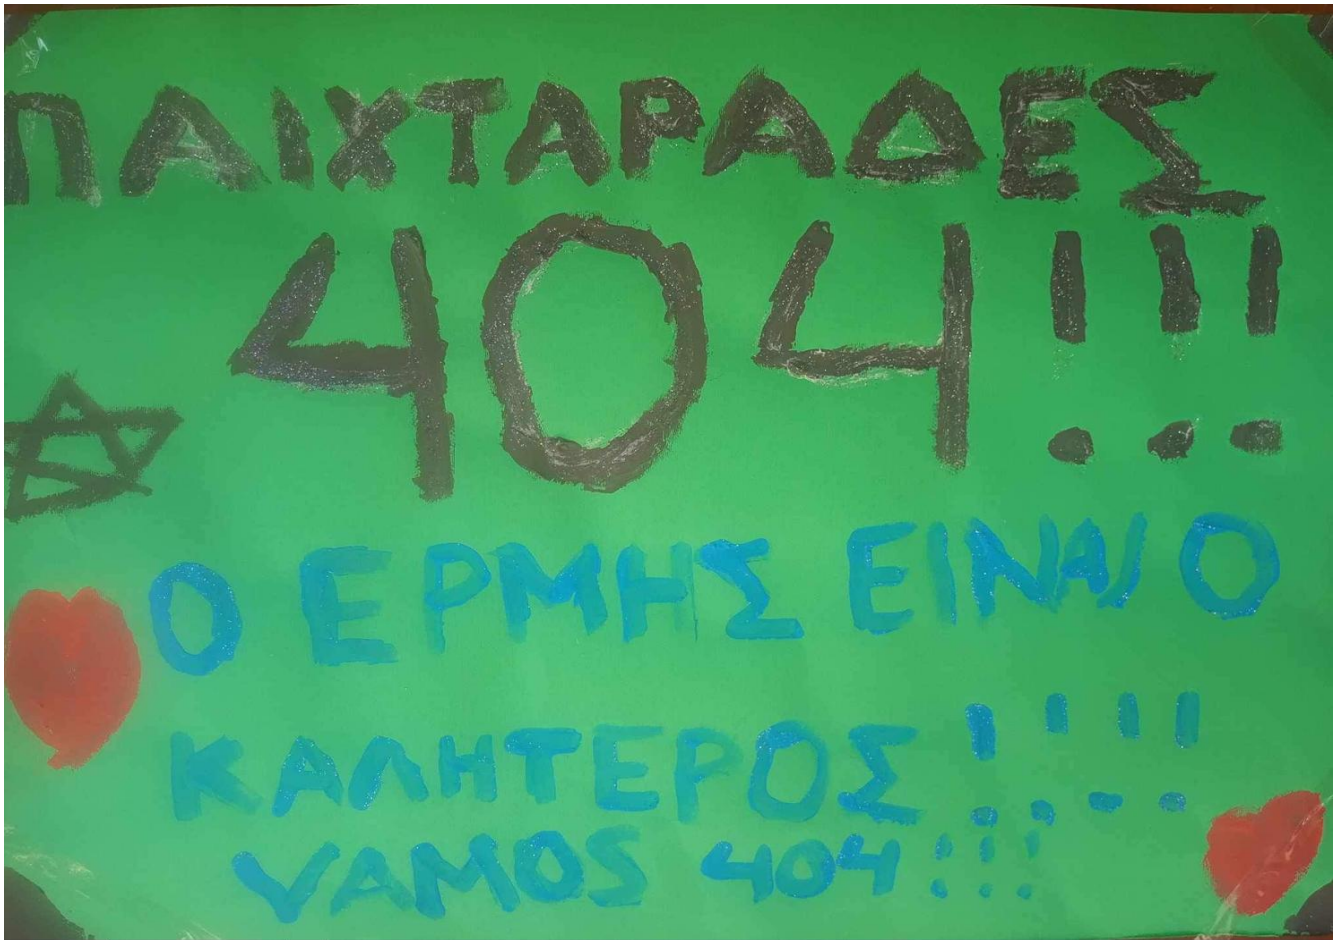 ΠΑΙΧΤΑΡΑΔΕΣ
404!!!
Ο ΕΡΜΗΣ ΕΙΝΑΙ Ο
ΚΑΛΗΤΕΡΟΣ!!!!
VAMOS 404!!!